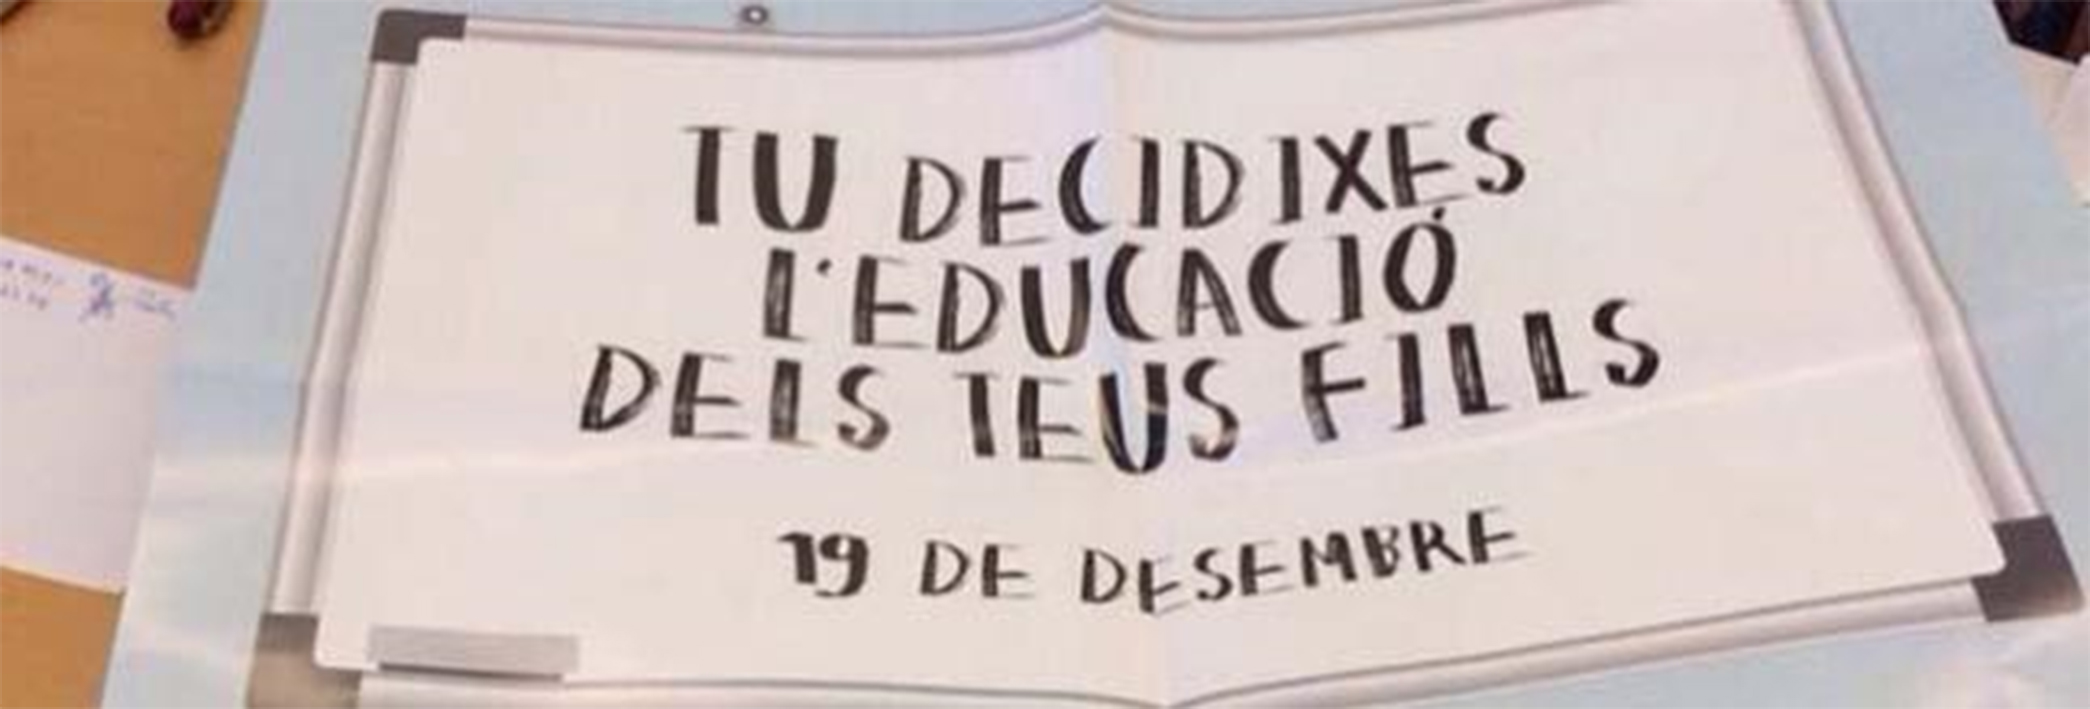 TU DECIDIXES
L'EDUCACIÓ
DELS TEUS FILLS
19 DE DESEMBRE